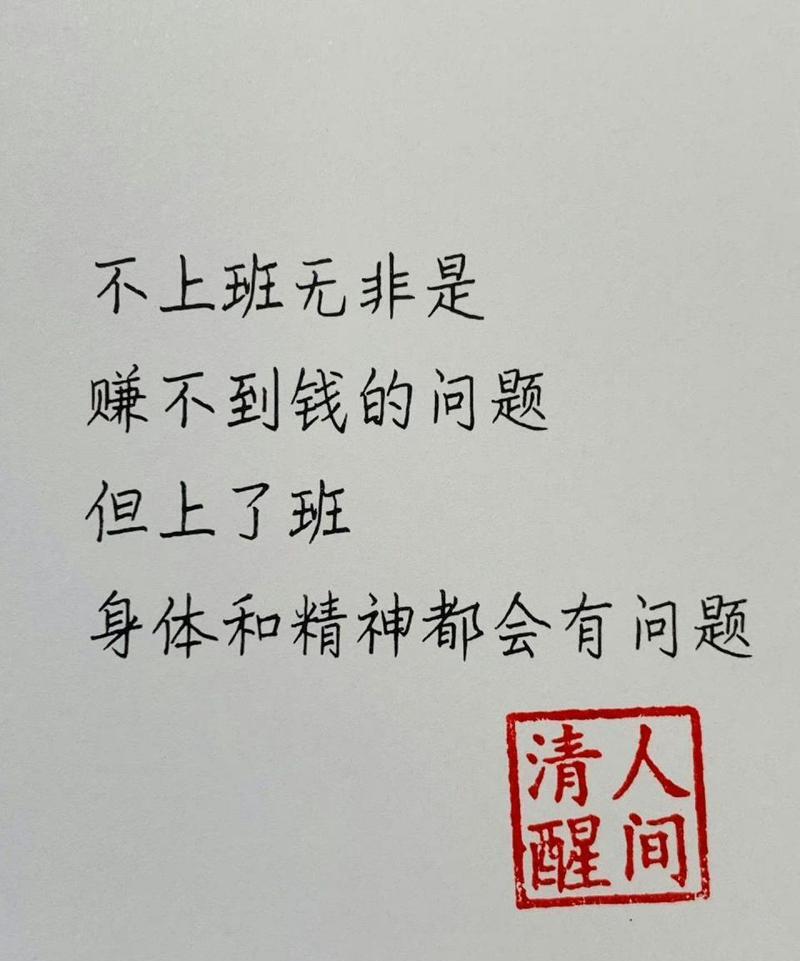 不上班无非是
赚不到钱的问题
但上了班
身体和精神都会有问题
人间
清醒